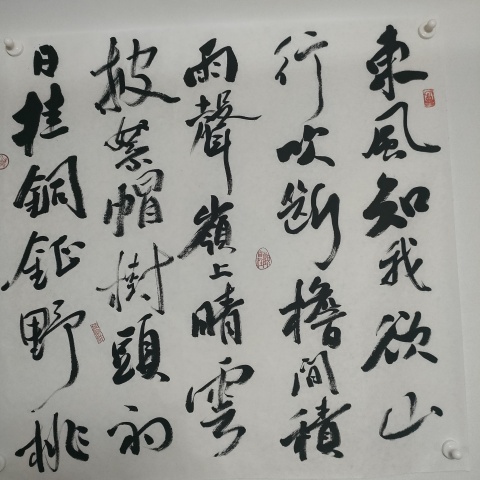 東風知我欲山
行吹斷檐間積
雨聲嶺上晴雲
披絮帽樹頭初
日挂銅鉦野桃